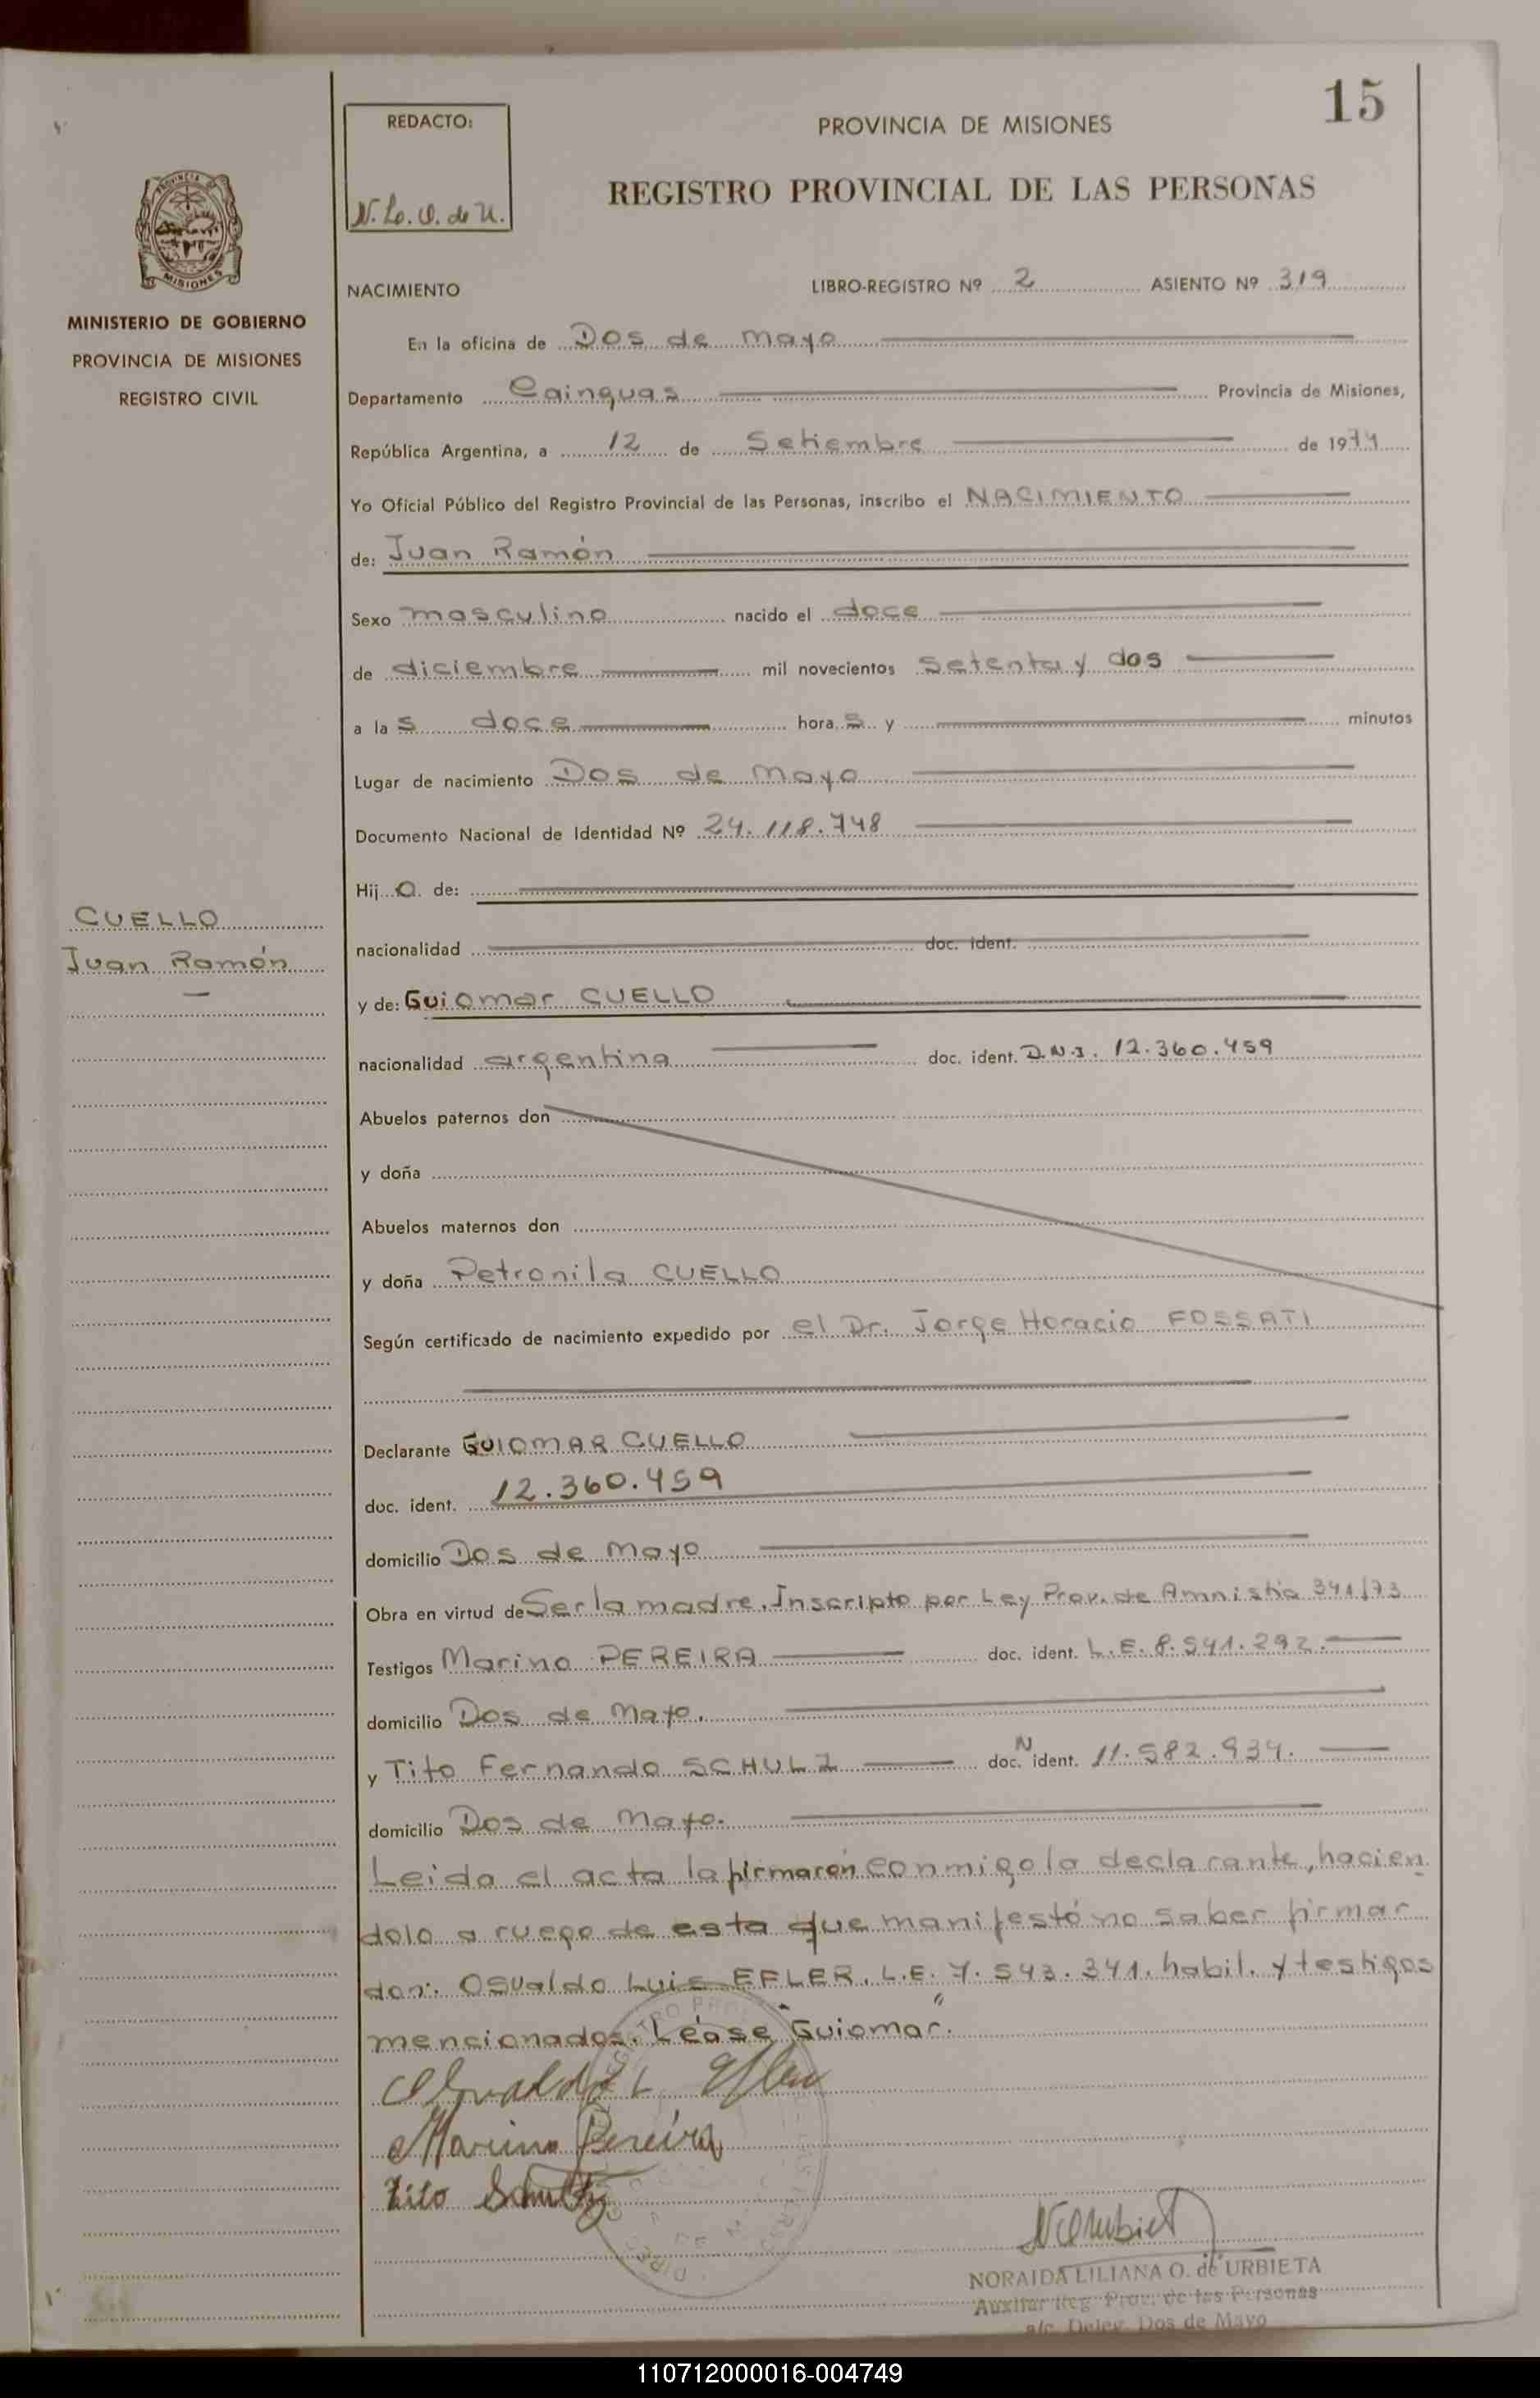 15
REDACTO:
N. L. O. de U.
PROVINCIA DE MISIONES
REGISTRO PROVINCIAL DE LAS PERSONAS
PROVINCIA
MISIONES
MINISTERIO DE GOBIERNO
PROVINCIA DE MISIONES
REGISTRO CIVIL
NACIMIENTO LIBRO-REGISTRO Nº 2 ASIENTO Nº 319
En la oficina de Dos de mayo
Departamento Cainguas Provincia de Misiones,
República Argentina, a 12 de Setiembre de 1974
Yo Oficial Público del Registro Provincial de las Personas, inscribo el NACIMIENTO
de: Juan Ramón
Sexo masculino nacido el doce
de diciembre mil novecientos setenta y dos
a las doce horas y minutos
Lugar de nacimiento Dos de Mayo
Documento Nacional de Identidad Nº 24.118.748
Hijo de:
CUELLO
Juan Ramón
nacionalidad doc. ident.
y de: Guiomar CUELLO
nacionalidad argentina doc. ident. D.N.I. 12.360.459
Abuelos paternos don
y doña
Abuelos maternos don
y doña Petronila CUELLO
Según certificado de nacimiento expedido por el Dr. Jorge Horacio FOSSATI
Declarante GUIOMAR CUELLO
doc. ident. 12.360.459
domicilio Dos de Mayo
Obra en virtud de Ser la madre. Inscripto por Ley Prov. de Amnistia 341/73
Testigos Marino PEREIRA doc. ident. L.E. 8.541.292.
domicilio Dos de Mayo.
y Tito Fernando SCHULZ doc. N ident. 11.582.934.
domicilio Dos de Mayo.
Leida el acta la firmaron conmigo la declarante, hacien
dolo a ruego de esta que manifestó no saber firmar
don: Osvaldo Luis EFLER. L.E. 7.543.341. habil. y testigos
mencionados. Léase "Guiomar".
Osvaldo L Efler
Marino Pereira
Tito Schultz
NORAIDA LILIANA O. de URBIETA
Auxiliar Reg. Prov. de las Personas
a/c. Deleg. Dos de Mayo
110712000016-004749